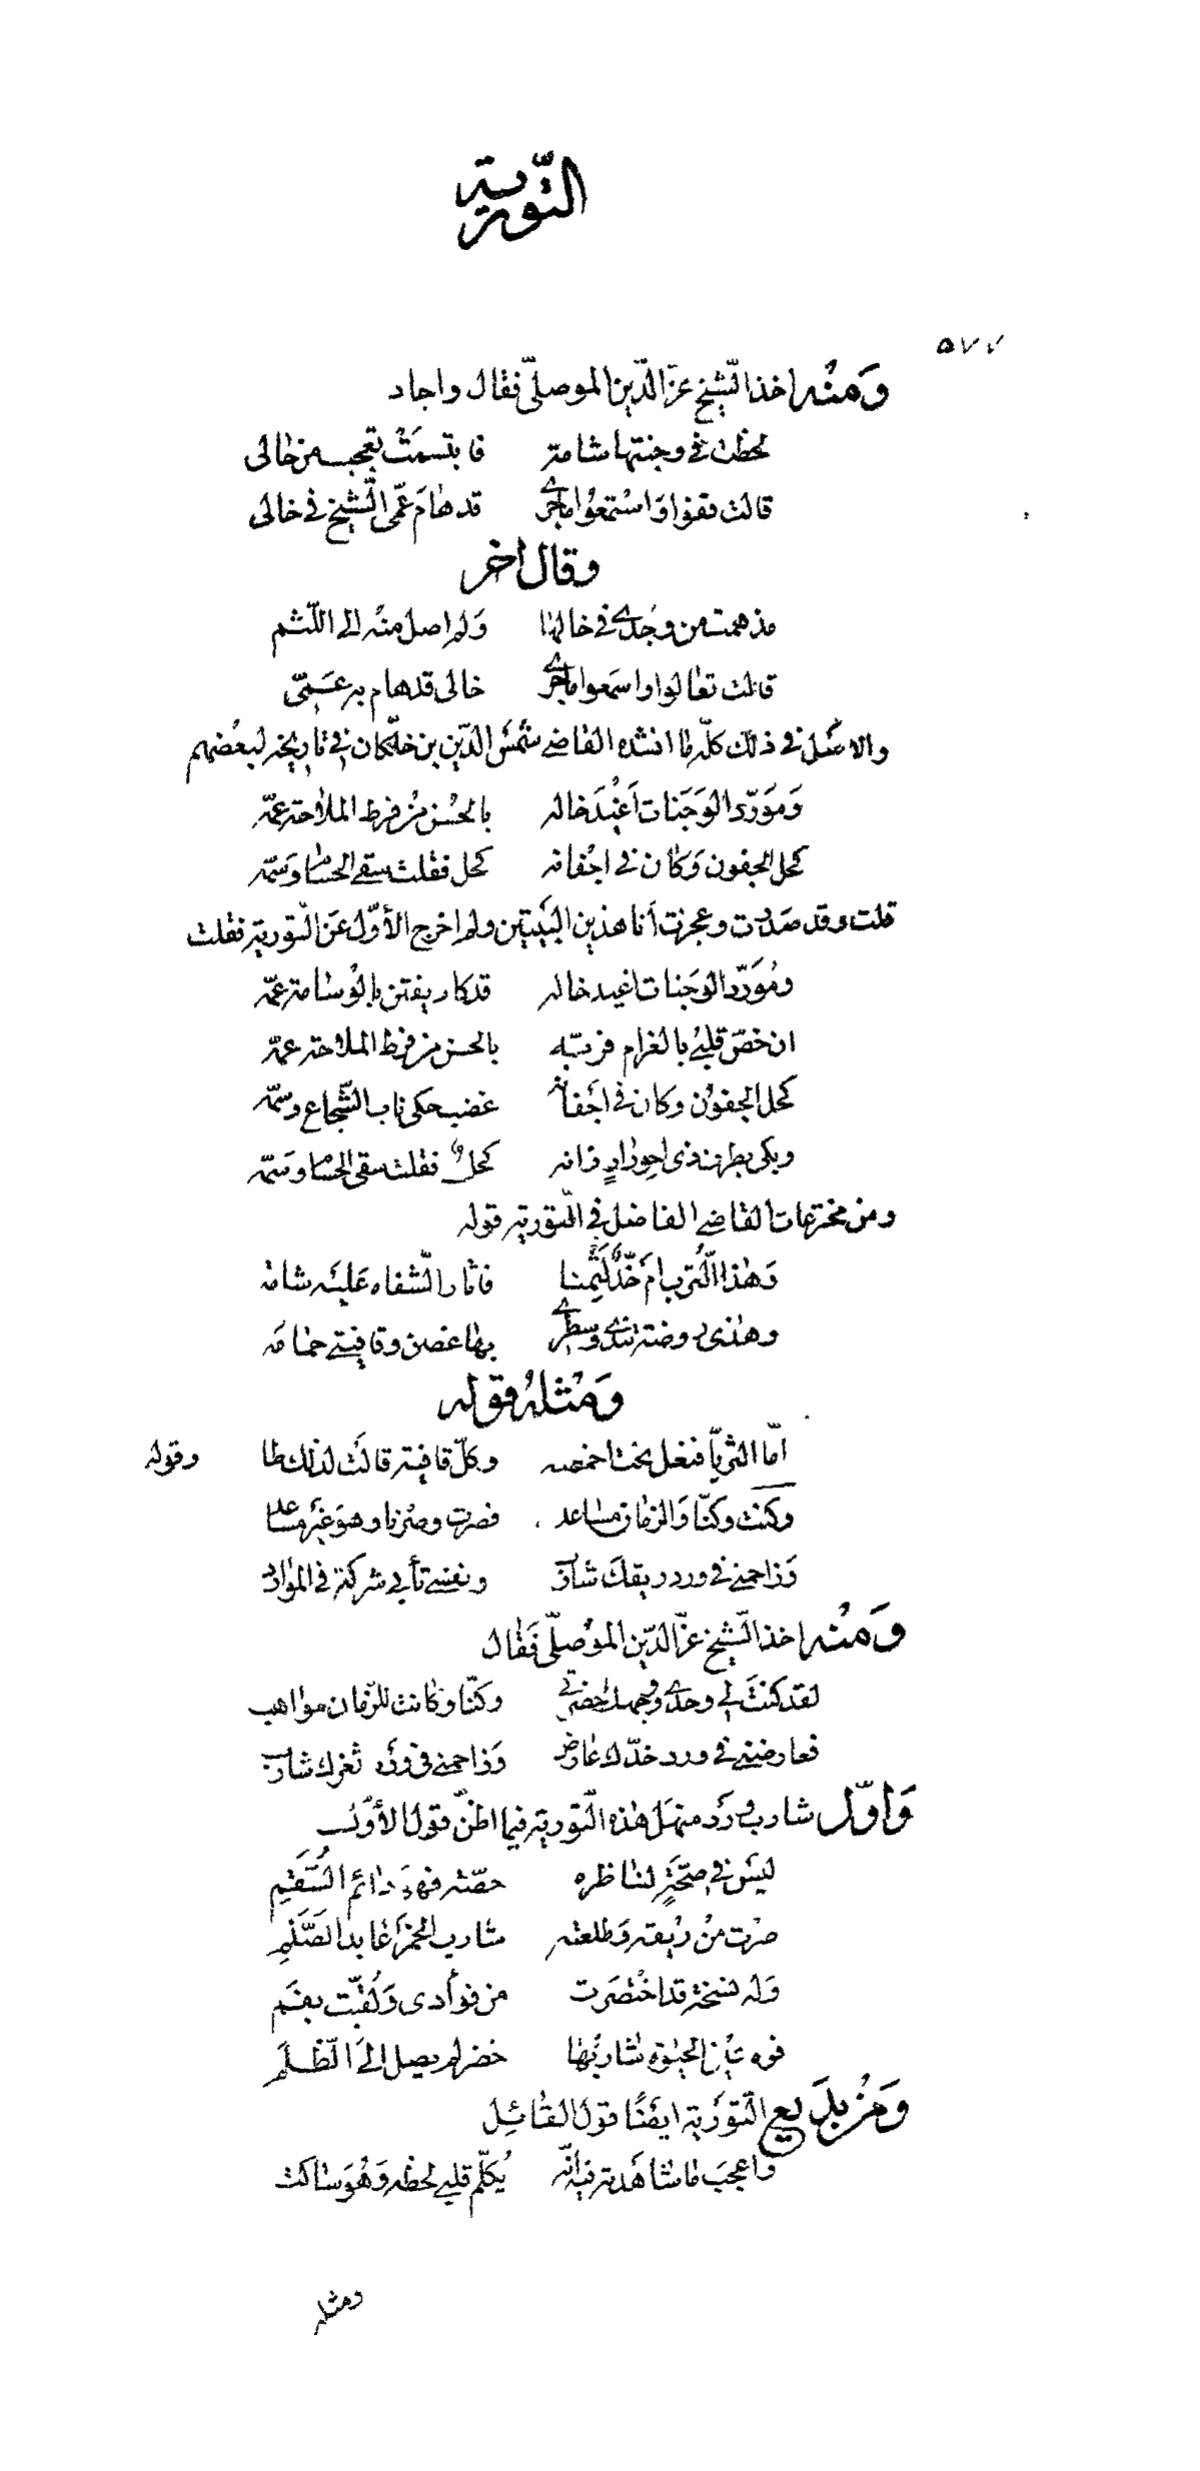 التّورية
٥٧٧
وَمنْه اخذ الشّيخ عزّ الدّين الموصلّي فقال واجاد
لحظت في وجنتها شامة فابتسمَتْ تعجب من خالى
قالت قفوا وَاسْتمعُوا ما جرى قد هامَ عمّى الشّيخ في خالى
وقال اخر
مذ همت من وجْدى في خالها وَلم اصل منْه الى اللّثم
قالت تعالوا واسمَعوا ما جرى خالى قد هام به عَمّى
والاصل في ذلك كلّه ما انشده القاضى شمْسُ الدّين بن خلّكان في تاريخه لبعْضهم
وَموَرّد الوَجَنات اَغْيدَ خاله بالحُسْن منْ فرط الملاحة عمّه
كحل الجفون وَكان في اجْفانه كحل فقلت سقى الحسام وَسمّه
قلت وقد صَدّرت وعجزت أنا هذين البَيتيْن ولم اخرج الأوّل عَن التّورية فقلت
ومُوَرّد الوجَنات اغيد خاله قد كاد يفتن بالوْسامة عمّه
ان خصّ قلبىْ بالغرام فربّه بالحسن من فرط الملاحة عمّه
كحل الجفوْن وكان في اجَفانه غضب حكى ناب الشّجاع وسمّه
وبكى بطرف ذى احورادٍ زانه كحلٌ فقلت سقى الحسام وَسمّه
ومن مخترعات القاضى الفاضل في التّورية قوله
وَهذا التُّرب امْ خَدٌّ لَثِمنا فاثار الشّفاه عَليْه شامه
وهذى روضة تندى وسطرى بها غصن وقافيتى حمامه
وَمْثلهُ قوله
امّا الثريّا فنعل تحت اخمصه وكلّ قافية قالَت لذلك طا وقوله
وكنت وكنّا وَالزمان مساعد فصرت وصرْنا وهوَ غيْر مساعد
وَزاحمنى في ورد ريقك شارب ونفسى تأبى شركة في الموارد
وَمنْه اخذ الشّيخ عزّ الدّين الموْصلّي فَقال
لقد كنتَ لي وحدى ووجهك حضرتى وكنّا وكانت للزّمان مواهب
فعارضنى في ورد خدّك عارض وَزاحمنى في ورْد ثغرك شارب
وَاوّل شارب ورَد منهل هذه التّورية فيما اظنّ قول الأوّل
ليْسَ في صحّةٍ لناظره حصّة فهو دائم السُّقَمِ
صرْت منْ ريْقته وَطلعته شارب الخمْر عَابد الصَّنَمِ
وَله نسخة قد اخْتصَرت من فوأدى وَلُقّبت بفَم
فوه عيْن الحيوة شاربُها خضر لم يصل الَى الظّلَم
وَمنْ بدَيع التّوْرية ايضًا قول القائِل
واعجبَ ما شاهَدته فيه انّه يُكلّم قلبى لحظه وَهْوَ ساكت
ومثله